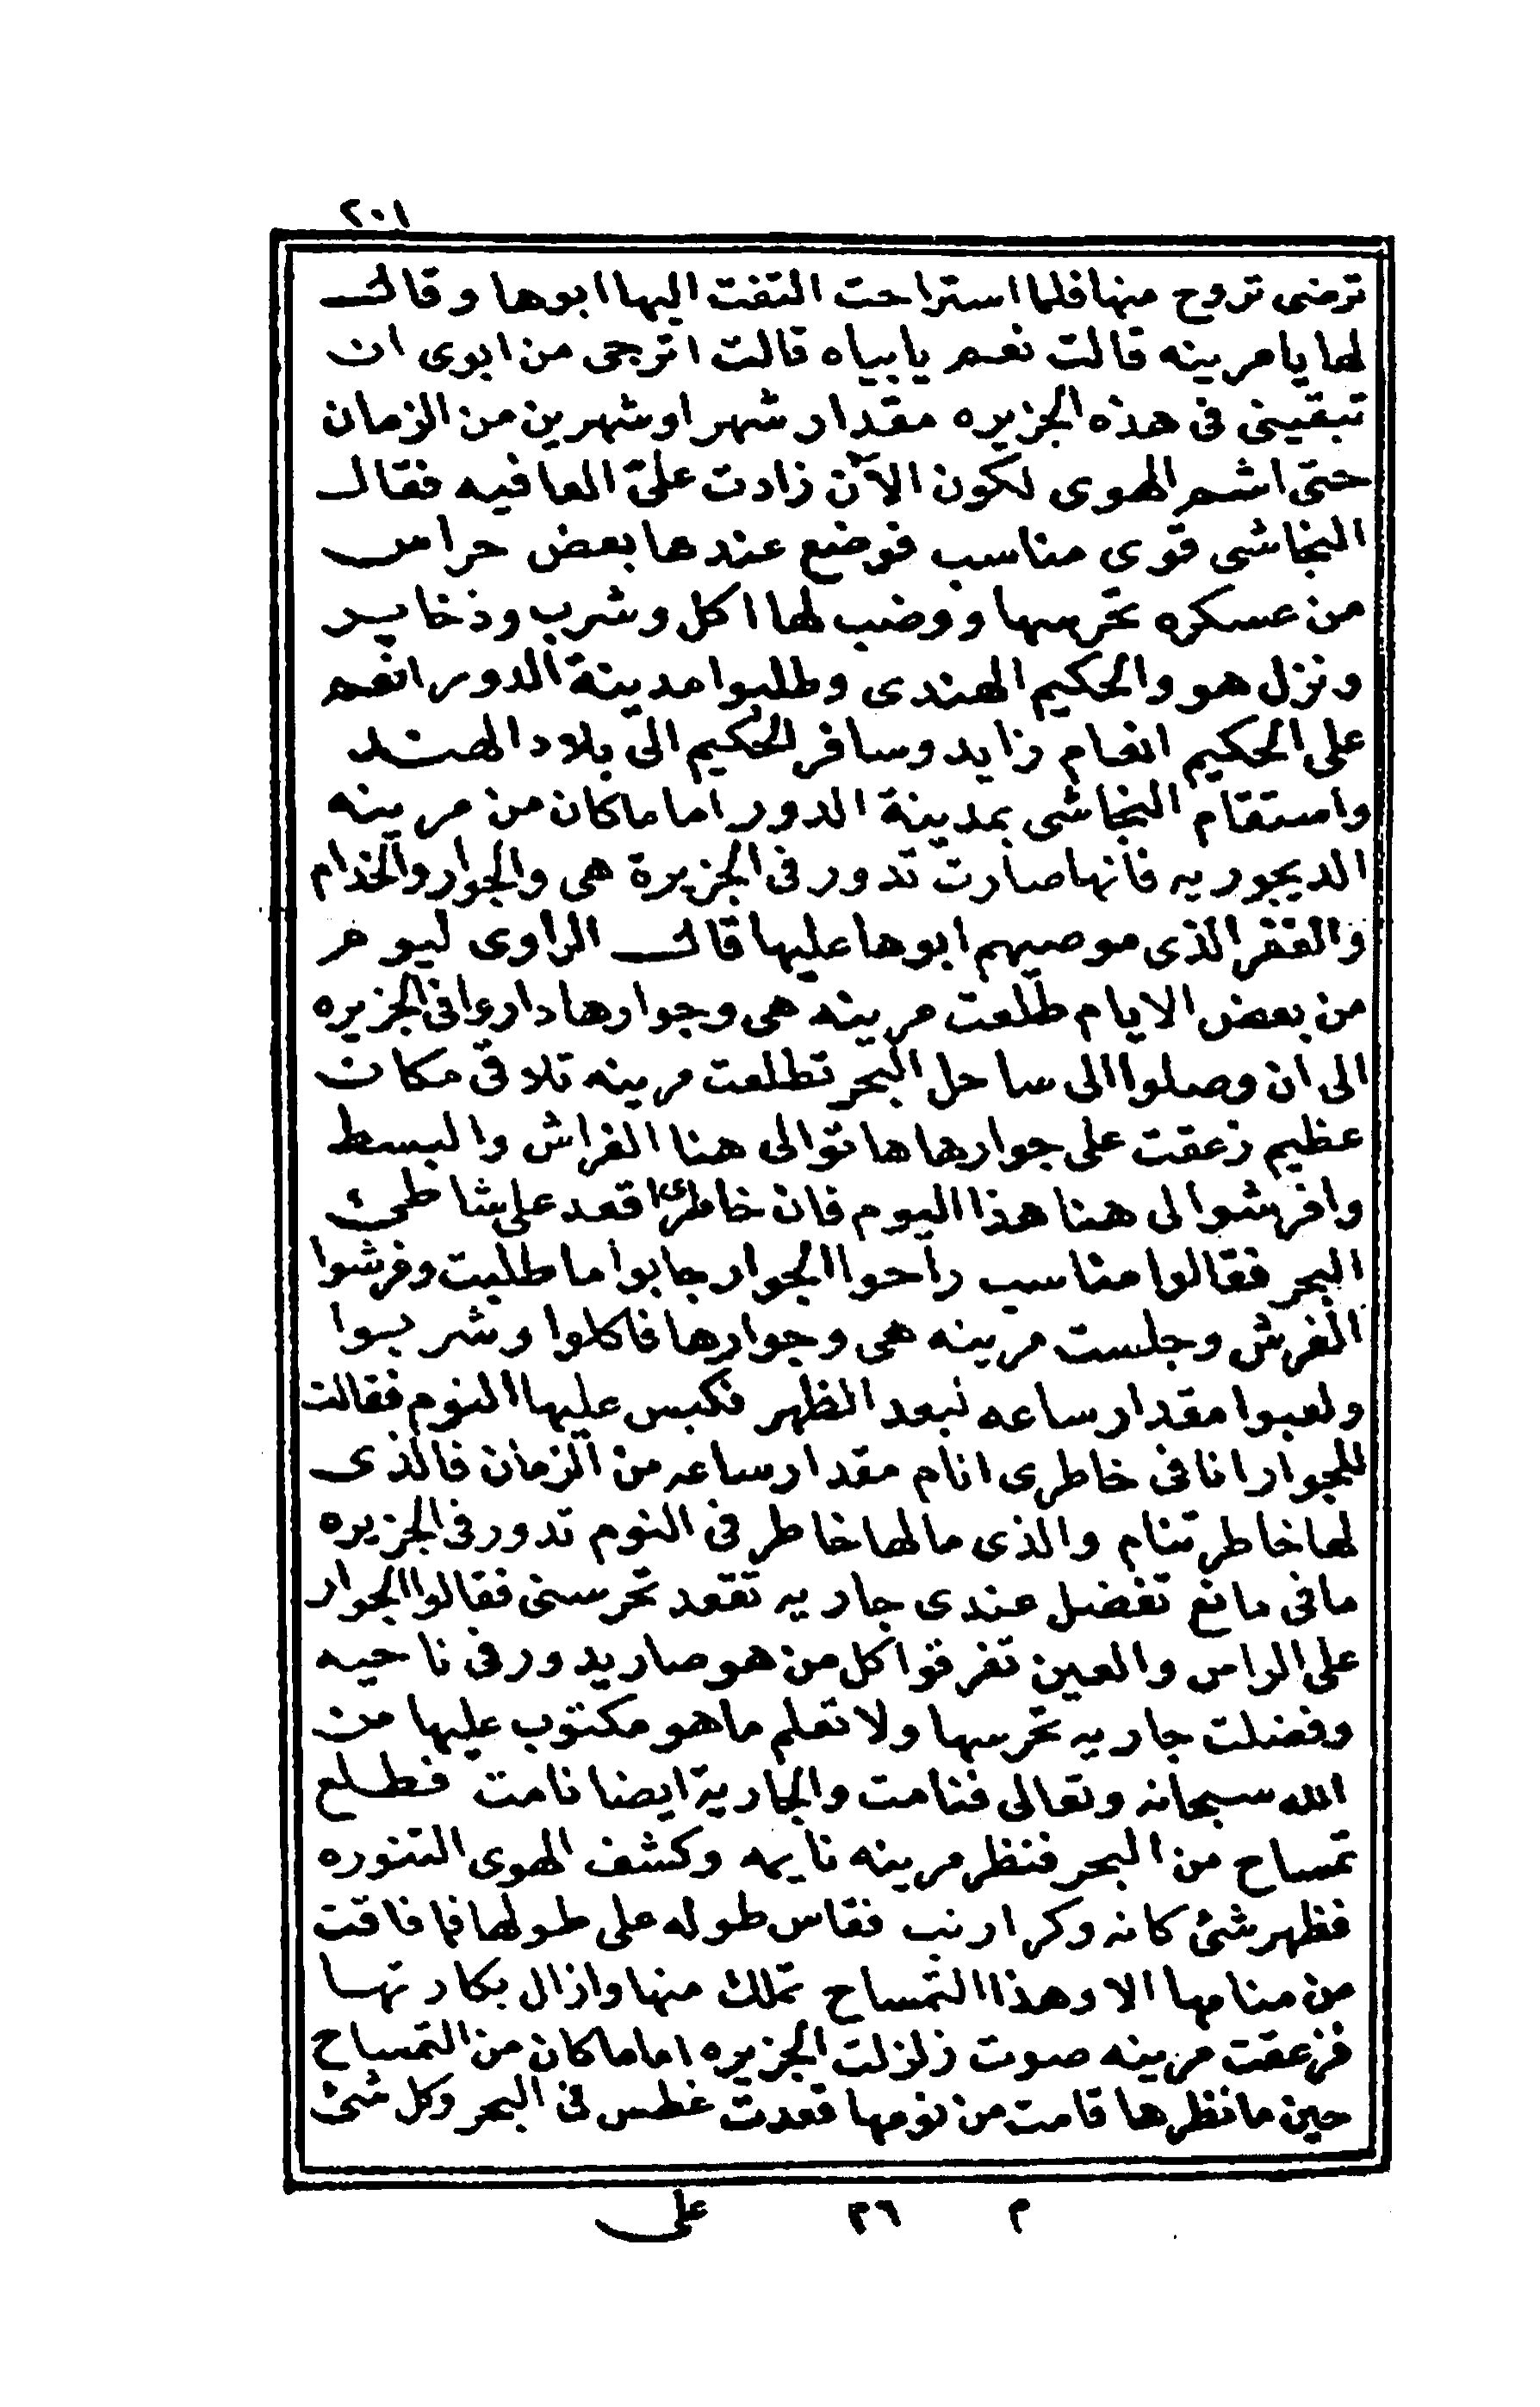 ٢٠١
ترضى تروح منها فلما استراحت التفت اليها ابوها وقال
لها يا مرينه قالت نعم يا بياه قالت اترجى من ابوى ان
تبقينى فى هذه الجزيره مقدار شهر او شهرين من الزمان
حتى اشم الهوى لكون الآن زادت علىّ العافيه فقال
النجاشى قوى مناسب فوضع عندها بعض حراس
من عسكره تحرسها ووضب لها اكل وشرب وذخاير
ونزل هو والحكيم الهندى وطلبوا مدينة الدور انعم
على الحكيم انعام زايد وسافر الحكيم الى بلاد الهند
واستقام النجاشى بمدينة الدور اما ماكان من مرينه
الديجوريه فانها صارت تدور فى الجزيرة هى والجوار والخدام
والغفر الذى موصيهم ابوها عليها قال الراوى ليوم
من بعض الايام طلعت مرينه هى وجوارها داروا فى الجزيره
الى ان وصلوا الى ساحل البحر تطلعت مرينه تلاقى مكان
عظيم زعقت على جوارها هاتوالى هنا الفراش والبسط
وافرشوا لى هنا هذا اليوم فان خاطرى اقعد على شاطئ
البحر فقالوا مناسب راحوا الجوار جابوا ما طلبت وفرشوا
الفرش وجلست مرينه هى وجوارها فاكلوا وشربوا
ولعبوا مقدار ساعه لبعد الظهر فكبس عليها النوم فقالت
للجوار انا فى خاطرى انام مقدار ساعه من الزمان فالذى
لها خاطر تنام والذى مالها خاطر فى النوم تدور فى الجزيره
مافى مانع تفضل عندى جاريه تقعد تحرسنى فقالوا الجوار
على الراس والعين تفرقوا كل من هو صار يدور فى ناحيه
وفضلت جاريه تحرسها ولا تعلم ماهو مكتوب عليها من
الله سبحانه وتعالى فنامت والجارية ايضا نامت فطلع
تمساح من البحر فنظر مرينه نايمه وكشف الهوى التنوره
فظهر شئ كانه وكر ارنب فقاس طوله على طولها فما فاقت
من منامها الا وهذا التمساح تملك منها وازال بكارتها
فزعقت مرينه صوت زلزلت الجزيره اما ماكان من التمساح
حين ما نظرها قامت من نومها قعدت غطس فى البحر وكل شئ
م ٢٦ على